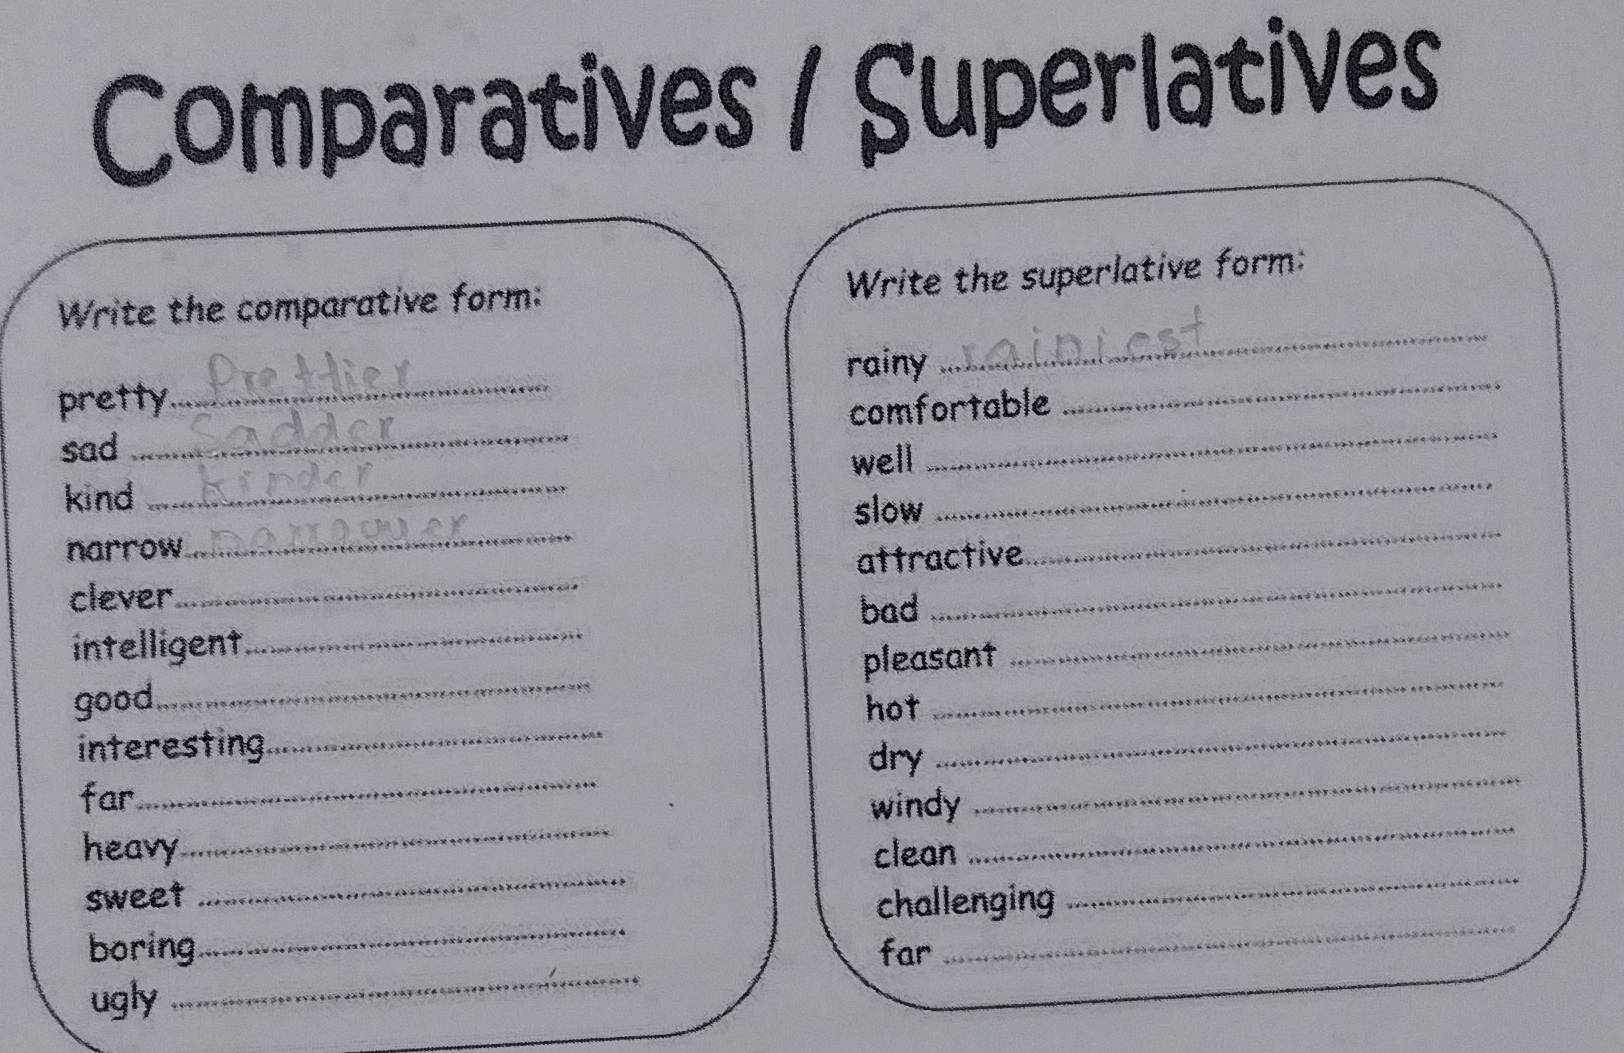 Comparatives / Superlatives
Write the comparative form:
pretty Prettier
sad Sadder
kind kinder
narrow narrower
clever
intelligent
good
interesting
far
heavy
sweet
boring
ugly
Write the superlative form:
rainy rainiest
comfortable
well
slow
attractive
bad
pleasant
hot
dry
windy
clean
challenging
far